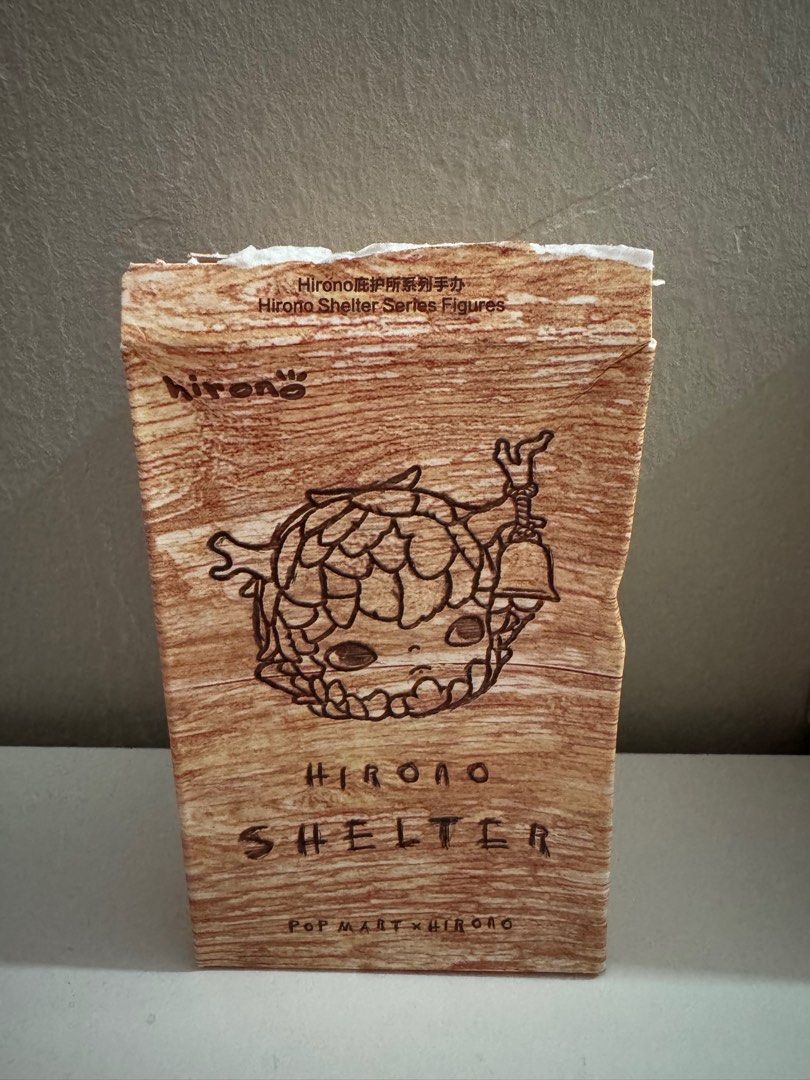 Hirono庇护所系列手办
Hirono Shelter Series Figures
hirono
HIRONO
SHELTER
POP MART × HIRONO